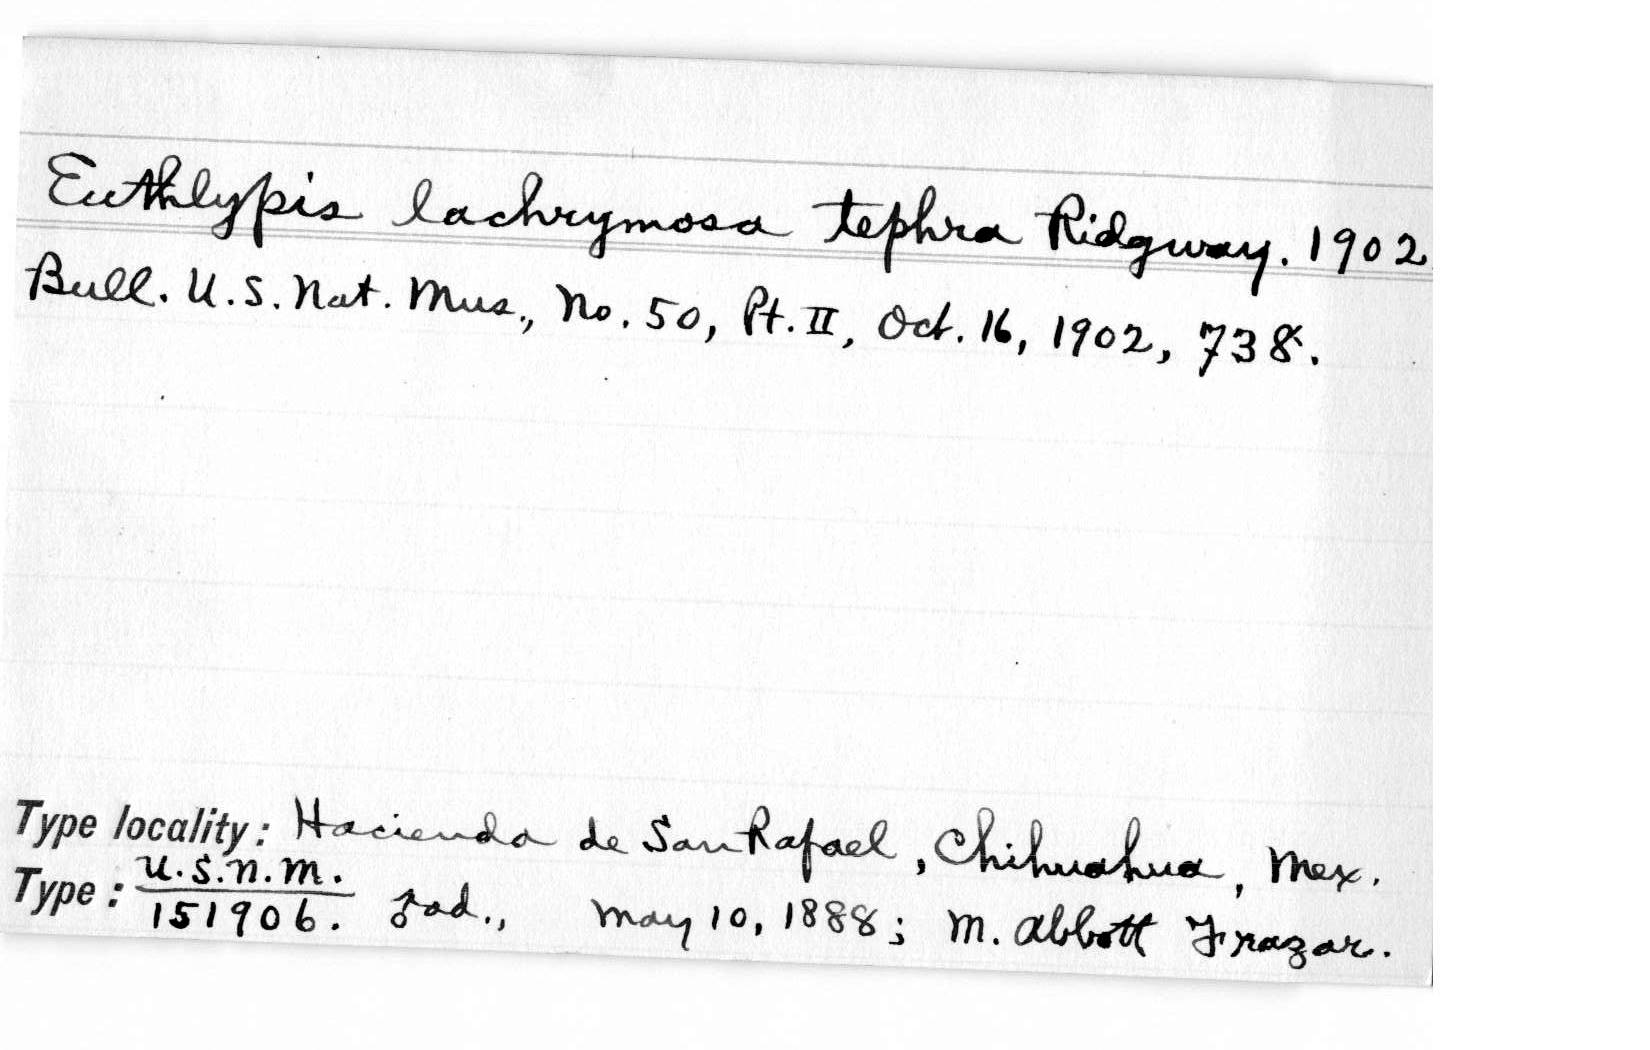 Euthlypis lachrymosa tephra Ridgway. 1902
Bull. U.S. Nat. Mus., No. 50, Pt. II, Oct. 16, 1902, 738.
Type locality: Hacienda de San Rafael, Chihuahua, Mex.
Type: U.S.N.M.
151906. ad., May 10, 1888; M. Abbott Frazar.